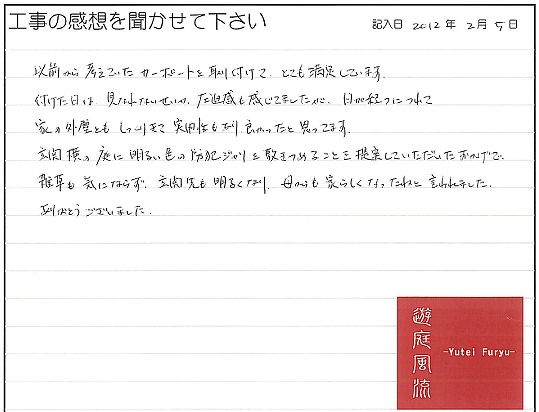 工事の感想を聞かせて下さい
記入日 2012年 2月 5日
以前から考えていたカーポートを取り付けて、とても満足しています。
付けた日は、見なれないせいか、圧迫感も感じてましたが、日が経つにつれて
家の外壁とも しっくりきて 実用性もあり 良かったと思ってます。
玄関横の庭に明るい色の防犯ジャリを敷きつめることを提案していただいたおかげで、
雑草も気にならず、玄関先も明るくなり、母からも家らしくなったねと言われました。
ありがとうございました。
遊庭風流
-Yutei Furyu-